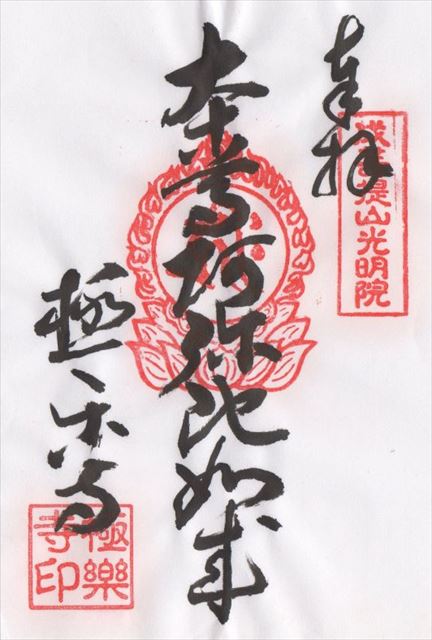 奉拝
提山光明院
本尊阿弥陀如来
極楽寺
極樂寺印